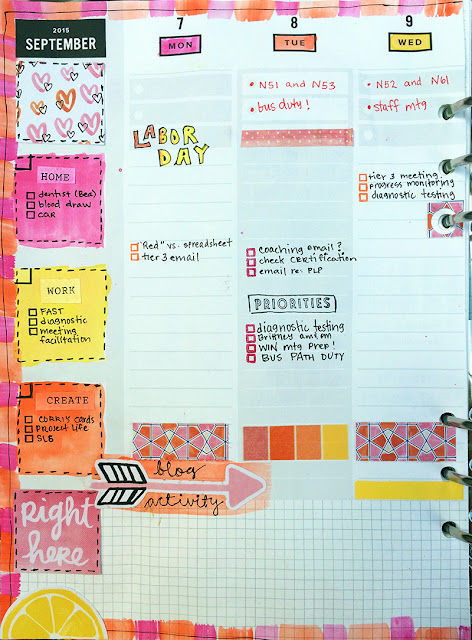 2015
SEPTEMBER
HOME
dentist (Bea)
blood draw
car
WORK
FAST
diagnostic
meeting
facilitation
CREATE
cards
project life
Right
here
7
MON
LABOR
DAY
"Red" vs. spreadsheet
tier 3 email
blog
activity
8
TUE
N51 and N53
bus duty!
coaching email?
check certification
email re: PLP
PRIORITIES
diagnostic testing
Britney
WIN mtg prep!
BUS PATH DUTY
9
WED
N52 and N61
staff mtg
tier 3 meeting
progress monitoring
diagnostic testing